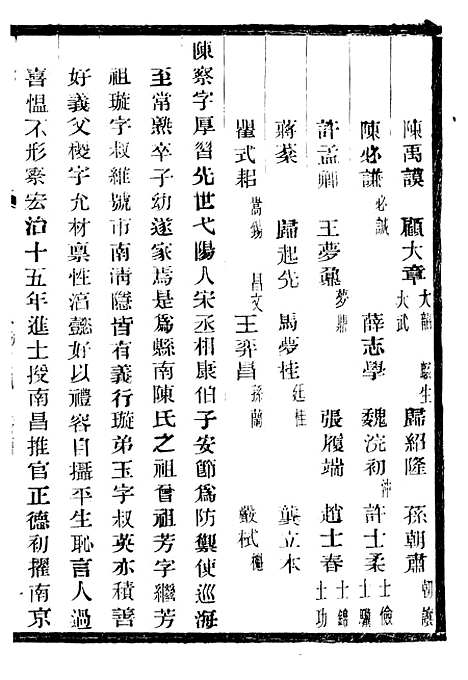 陳禹謨 顧大章 大韶 大武 麟生 歸紹隆 孫朝肅 朝讓
陳必謙 必誠 薛志學 魏浣初 沖 許士柔 士儉 士驥
許孟卿 王夢鼐 夢鼎 張履端 趙士春 士錦 士功
蔣棻 歸起先 馬夢桂 廷桂 龔立本
瞿式耜 嵩錫 昌文 王奕昌 孫蘭 嚴栻 熊
陳察字厚習先世弋陽人宋丞相康伯子安節爲防禦使巡海
至常熟卒子幼遂家焉是爲縣南陳氏之祖曾祖芳字繼芳
祖璇字叔維號市南淸隱皆有義行璇弟玉字叔英亦積善
好義父稷字允材禀性渲懿好以禮容自攝平生恥言人過
喜慍不形察宏治十五年進士授南昌推官正德初擢南京